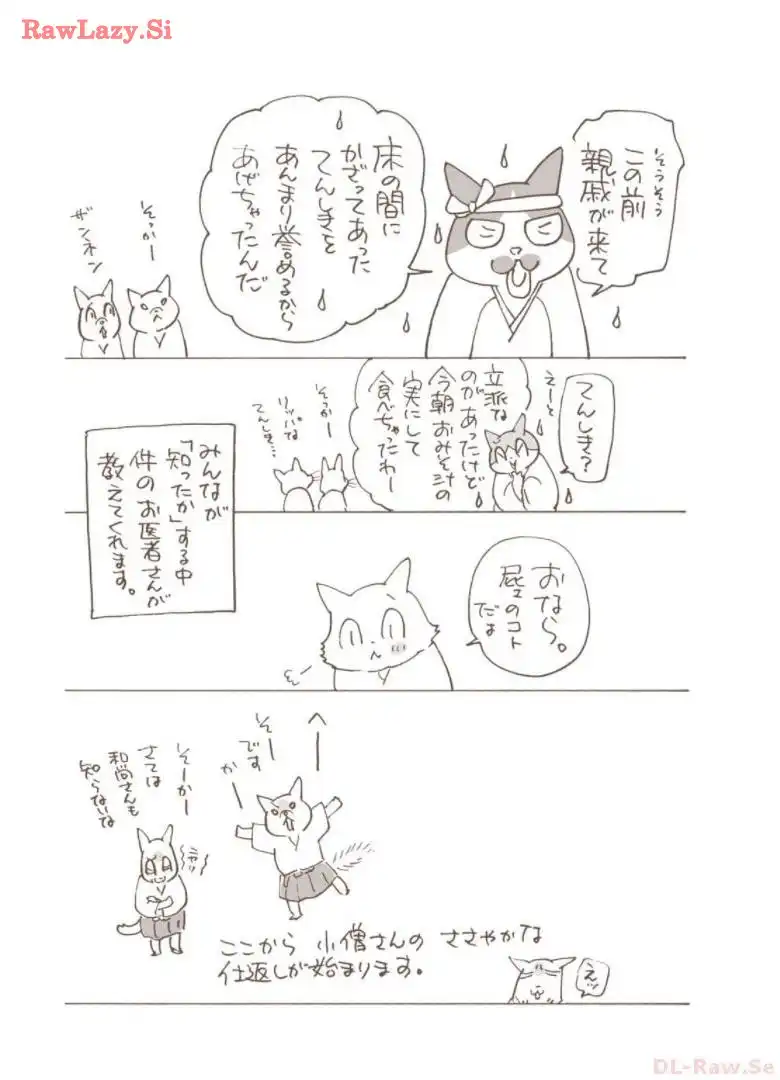 RawLazy.Si
そうそう
この前
親戚が来て
床の間に
かざってあった
てんしきを
あんまり誉めるから
あげちゃったんだ
そっかー
ザンネン
てんしき?
えーと
立派な
のがあったけど
今朝おみそ汁の
実にして
食べちゃったわー
そっかー
リッパな
てんしき…
みんなが
「知ったか」する中
件のお医者さんが
教えてくれます。
おなら。
屁のコト
だよ
へー
そー
です
かー
そーかー
さては
和尚さんも
知らないな
ニヤリ
ここから 小僧さんの ささやかな
仕返しが始まります。
えッ
DL-Raw.Se